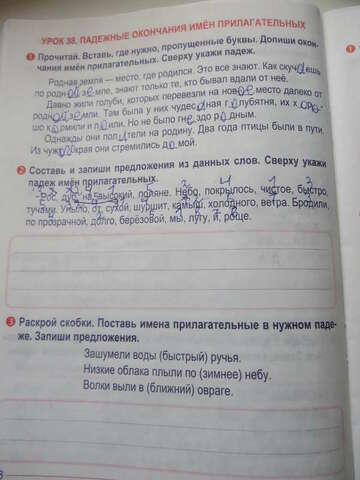 УРОК 38. ПАДЕЖНЫЕ ОКОНЧАНИЯ ИМЁН ПРИЛАГАТЕЛЬНЫХ
1 Прочитай. Вставь, где нужно, пропущенные буквы. Допиши окон-
чания имён прилагательных. Сверху укажи падеж.
Родная земля — место, где родился. Это все знают. Как скучаешь
по родной земле, знают только те, кто бывал вдали от неё.
Давно жили голуби, которых перевезли на новое место далеко от
родной земли. Там была у них чудесная голубятня, их хоро-
шо кормили и поили. Но не было гнезда родным.
Однажды они полетели на родину. Два года птицы были в пути.
Из чужого края они стремились домой.
2 Составь и запиши предложения из данных слов. Сверху укажи
падеж имён прилагательных.
Рос, дуб, на, высокий, поляне. Небо, покрылось, чистое, быстро,
тучами. Уныло, от, сухой, шуршит, камыш, холодного, ветра. Бродили,
по прозрачной, долго, берёзовой, мы, лугу, и, роще.
3 Раскрой скобки. Поставь имена прилагательные в нужном паде-
же. Запиши предложения.
Зашумели воды (быстрый) ручья.
Низкие облака плыли по (зимнее) небу.
Волки выли в (ближний) овраге.